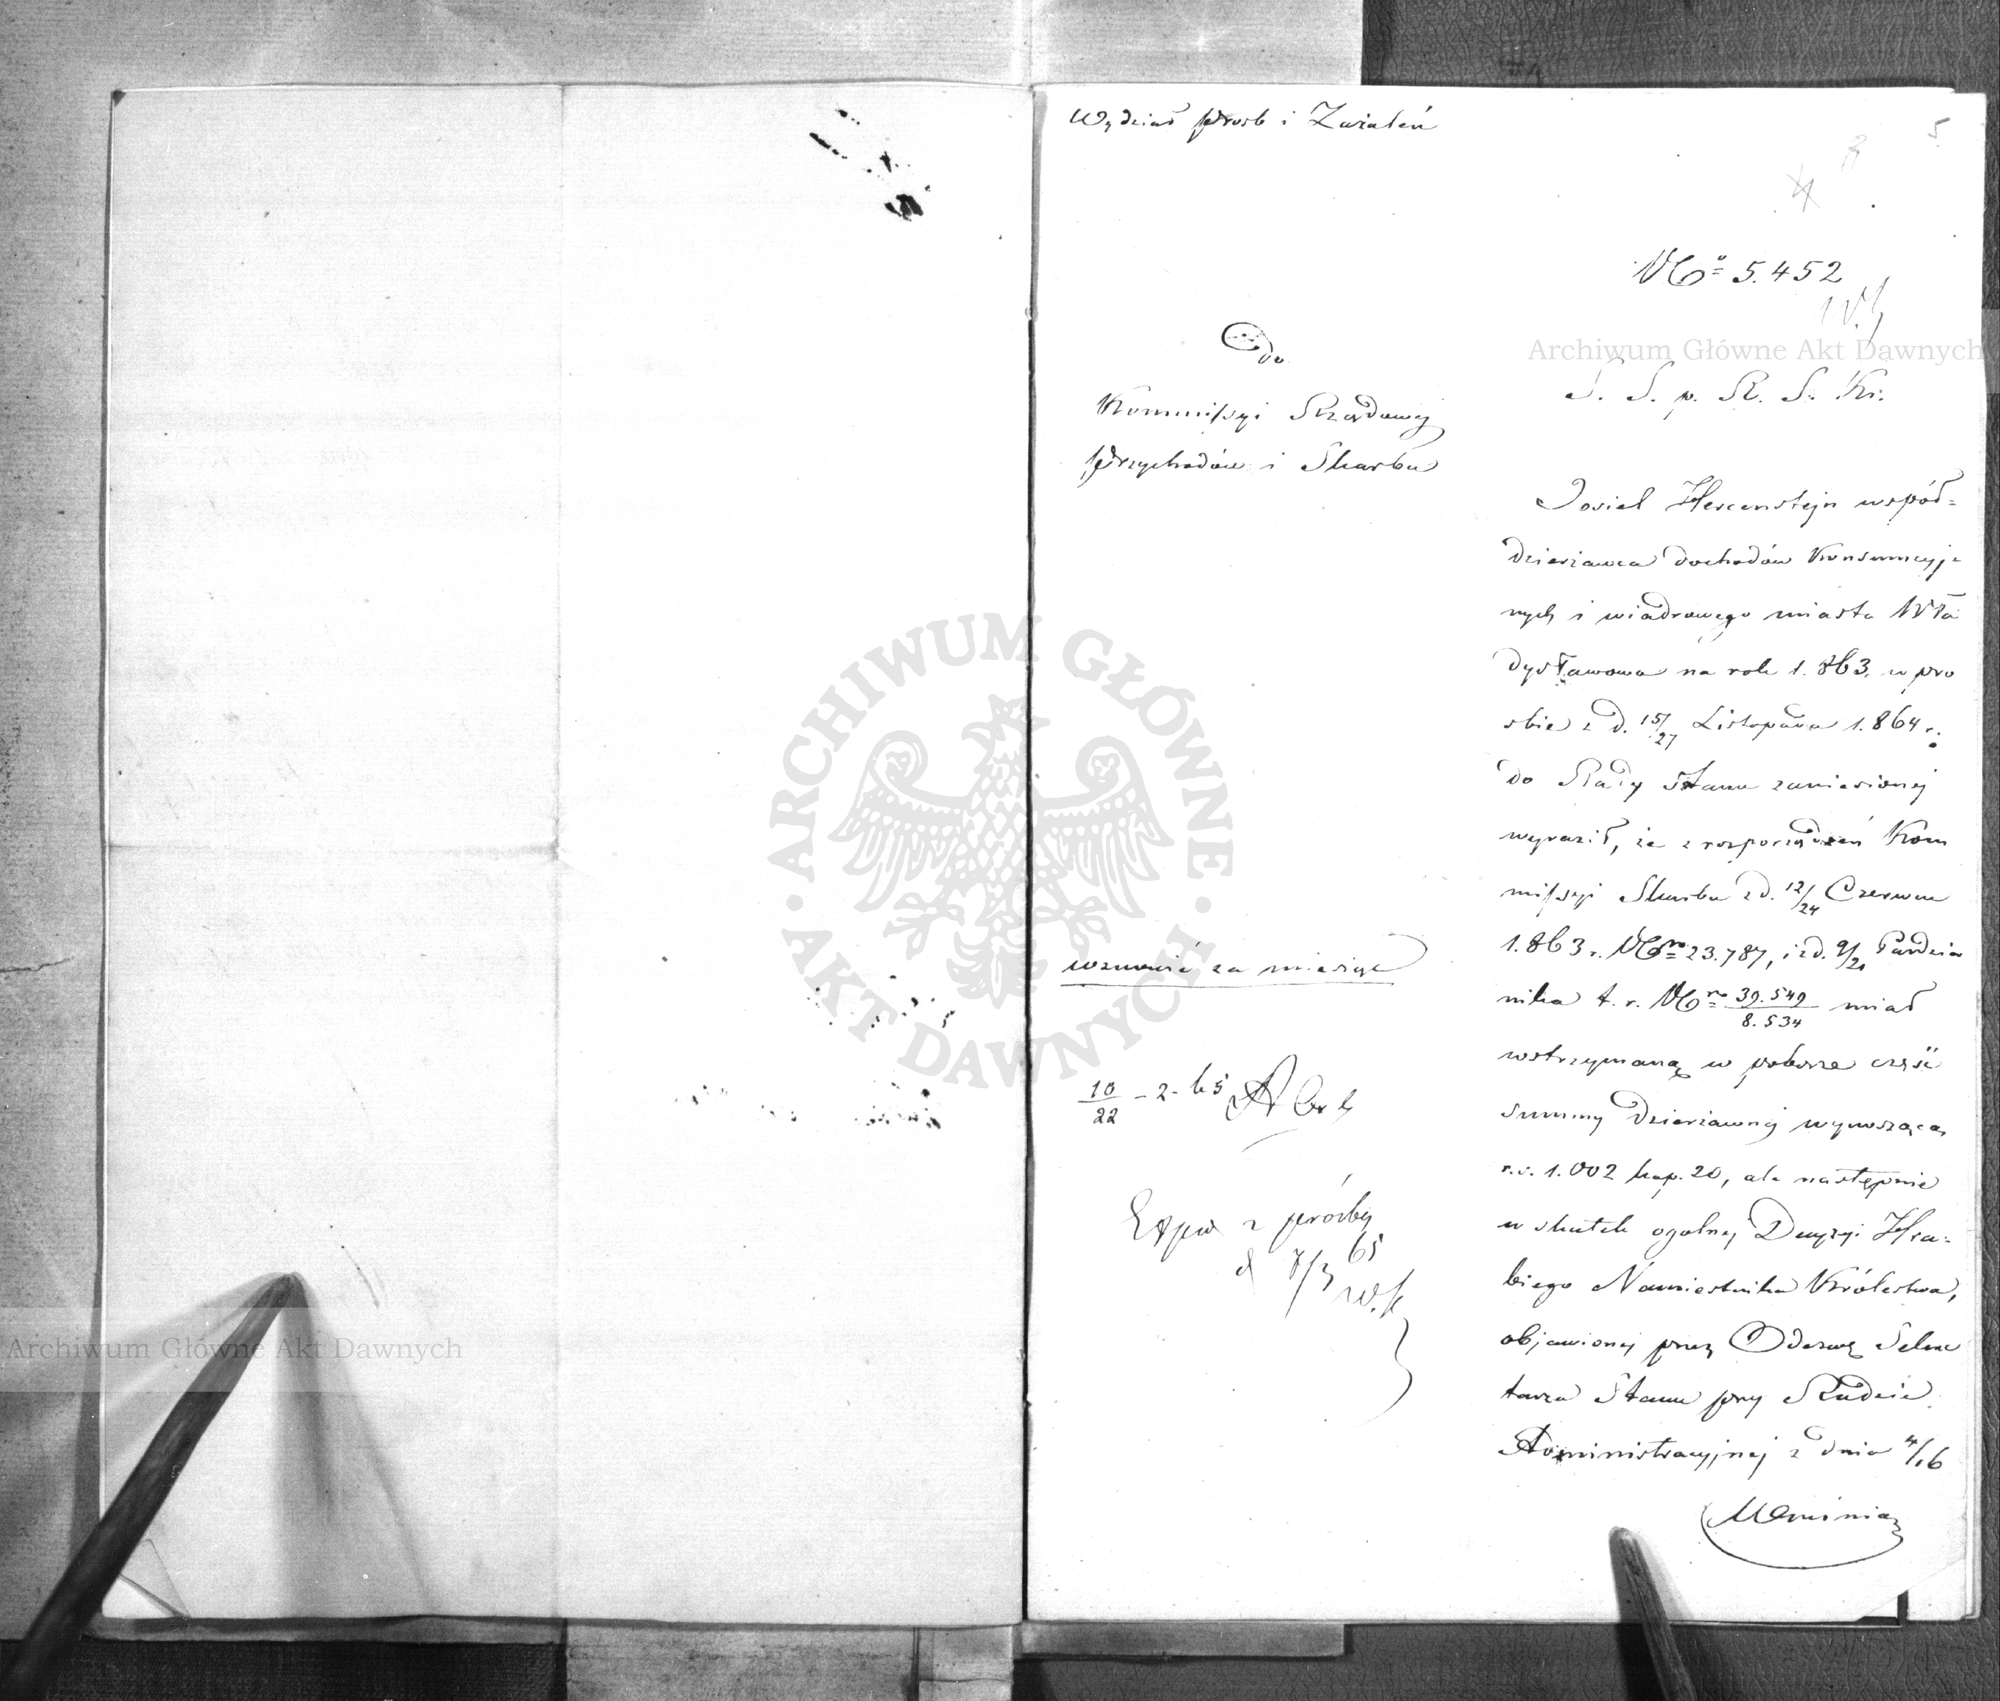 Wydział Prosb i Zażaleń
5
No 5.452
do
Kommissyi Rządowej
Przychodów i Skarbu
S. S. p. R. S. Kr.
Josiel Hercensztejn współ-
dzierżawca dochodów Konsumcyj-
nych i wiadrowego miasta Wła
dysławowa na rok 1.863. w pro
śbie z d. 15/27 Listopada 1.864 r.
do Rady Stanu zaniesionej
wyraził, że z rozporządzeń Kom
missyi Skarbu z d. 12/24 Czerwca
1.863 r. No 23.787, i z d. 9/21 Paździer
nika t. r. No 39.549/8.534 miał
wstrzymaną w poborze część
summy dzierżawnej wynoszącą
r.s. 1.002 kop. 20, ale następnie
w skutek ogólnej Decyzyi Hra-
biego Namiestnika Królestwa,
objawionej przez Odezwę Sekre
tarza Stanu przy Radzie
Administracyjnej z dnia 4/16
wznowić za miesiąc
10/22 - 2 - 65
z prośby
65
Archiwum Główne Akt Dawnych
ARCHIWUM GŁÓWNE
AKT DAWNYCH
Archiwum Główne Akt Dawnych